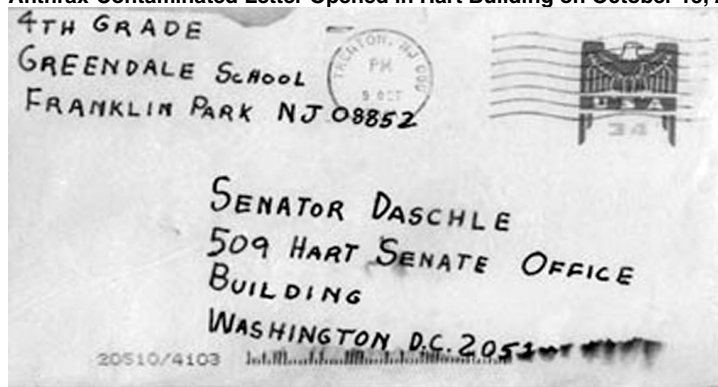 Anthrax-Contaminated Letter Opened in Hart Building on October
4TH GRADE
GREENDALE SCHOOL
FRANKLIN PARK NJ 08852
TRENTON, NJ
PM
9 OCT
USA
34
SENATOR DASCHLE
509 HART SENATE OFFICE
BUILDING
WASHINGTON D.C. 2051
20510/4103